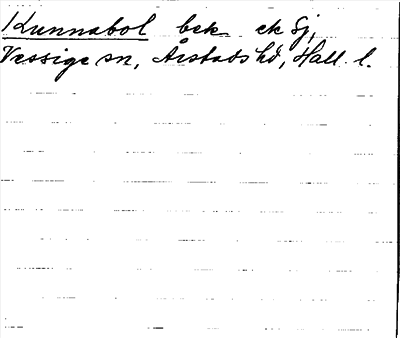 Kunnabol bek ek Sj,
Vessige sn, Årstads hd, Hall. l.